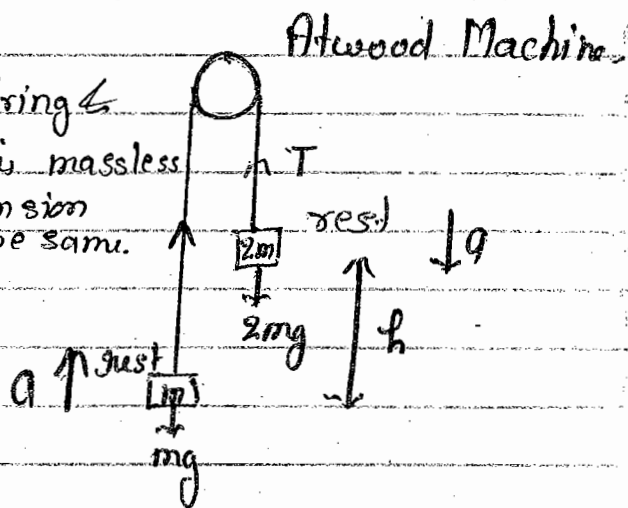 Atwood Machine.
ring &
is massless
T
nsion
be same.
rest
2m
a
2mg
h
a
rest
m
mg